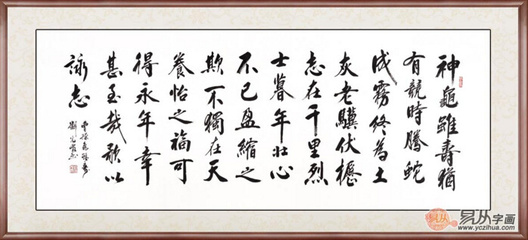 神龜雖壽猶
有競時騰蛇
成霧終為土
灰老驥伏櫪
志在千里烈
士暮年壯心
不已盈縮之
欺不獨在天
養怡之福可
得永年幸
甚至哉歌以
詠志
曹操龜雖壽
易从字画
www.yczihua.com